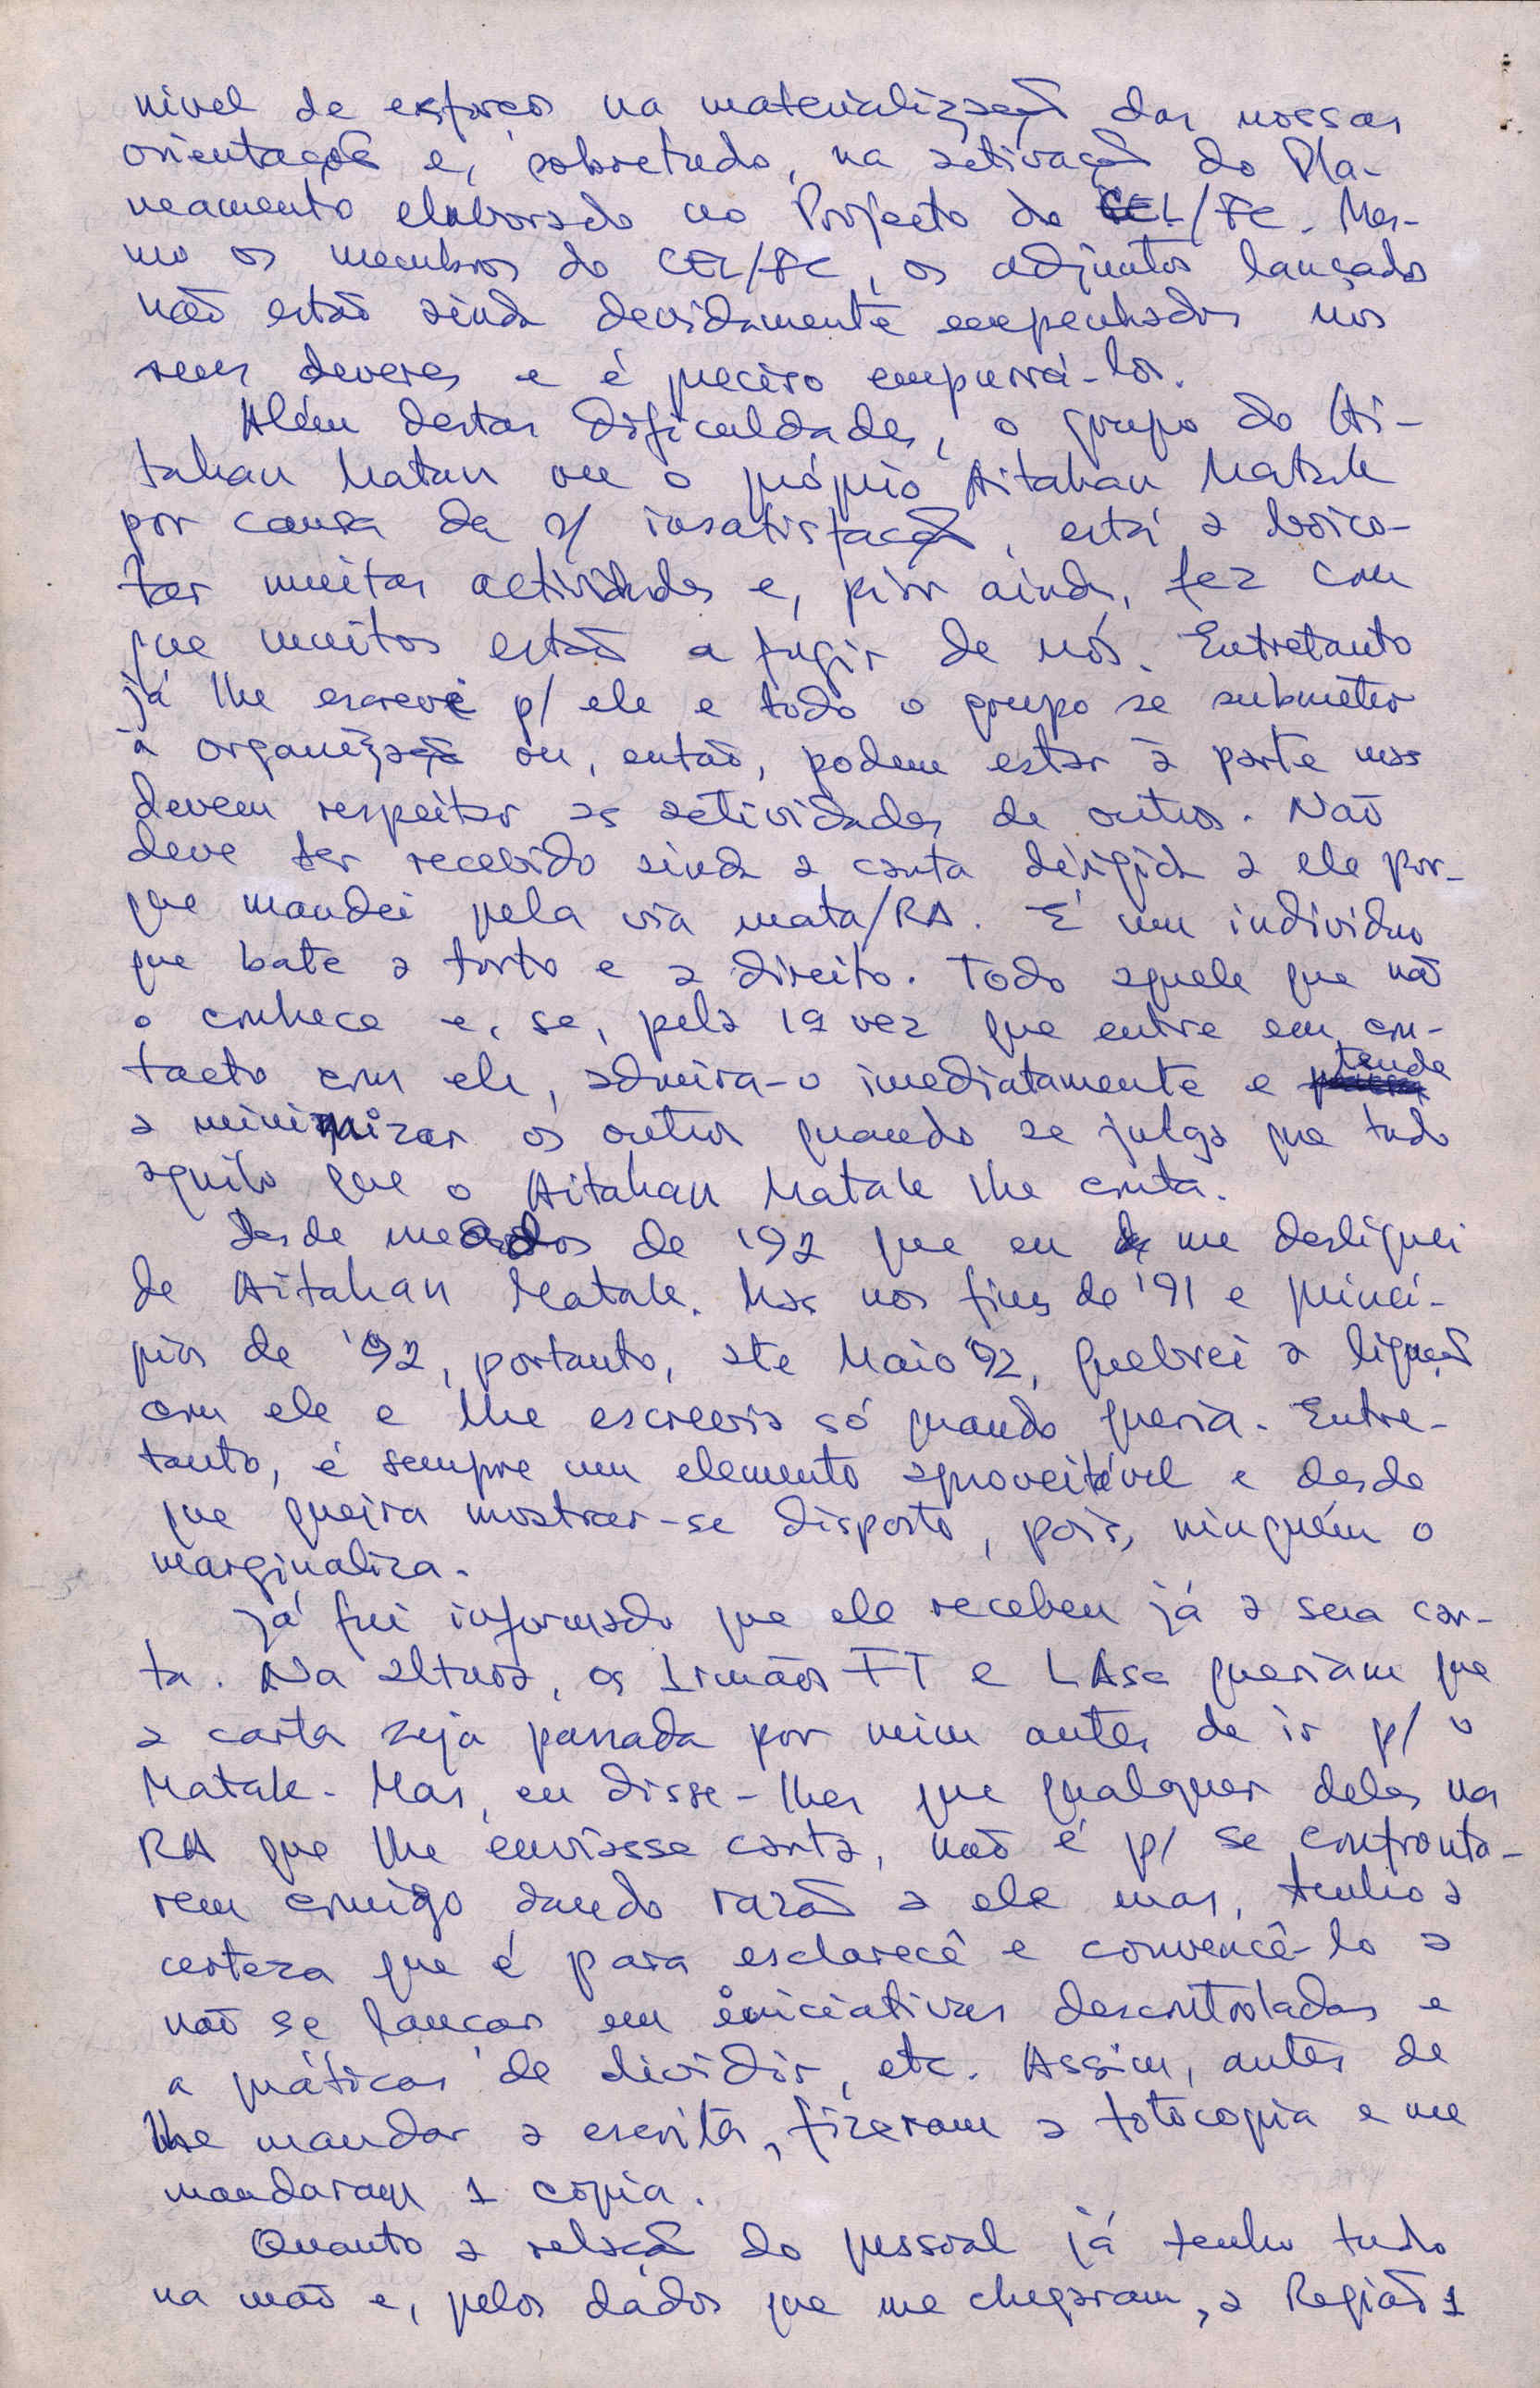 nivel de esforços na materialização das nossas
orientações e, sobretudo, na activação do Pla-
neamento elaborado no Projecto do CEL/FC. Mes-
mo os membros do CEL/FC, os adjuntos lançados
não estão ainda devidamente empenhados nos
seus deveres e é preciso empurrá-los.
Além destas dificuldades, o grupo do Ai-
tahan Matan ou o próprio Aitahan Matak
por causa da s/ insatisfação, está a boico-
tar muitas actividades e, pior ainda, fez com
que muitos estão a fugir de nós. Entretanto
já lhe escrevi p/ ele e todo o grupo se submeter
à organização ou, então, podem estar à parte mas
devem respeitar as actividades de outros. Não
deve ter recebido ainda a carta dirigida a ele por-
que mandei pela via mata/RA. É um individuo
que bate a torto e a direito. Todo aquele que não
o conhece e, se, pela 1ª vez que entre em con-
tacto com ele, admira-o imediatamente e tende
a minimizar os outros quando se julga que tudo
aquilo que o Aitahan Matak lhe conta.
Desde meados de '92 que eu me desliguei
de Aitahan Matak. Mas nos fins de '91 e princí-
pios de '92, portanto, até Maio '92, quebrei a ligação
com ele e lhe escrevia só quando queria. Entre-
tanto, é sempre um elemento aproveitável e desde
que queira mostrar-se disposto, pois, ninguém o
marginaliza.
Já fui informado que ele recebeu já a sua car-
ta. Na altura, os Irmãos FT e LAse queriam que
a carta seja passada por mim antes de ir p/ o
Matak. Mas, eu disse-lhes que qualquer deles na
RA que lhe enviasse carta, não é p/ se confronta-
rem comigo dando razão a ele mas, tenho a
certeza que é para esclarecê e convencê-lo a
não se lançar em iniciativas descontroladas e
a práticas de dividir, etc. Assim, antes de
lhe mandar a escrita, fizeram a fotocopia e me
mandaram 1 copia.
Quanto a relação do pessoal já tenho tudo
na mão e, pelos dados que me chegaram, a Região 1